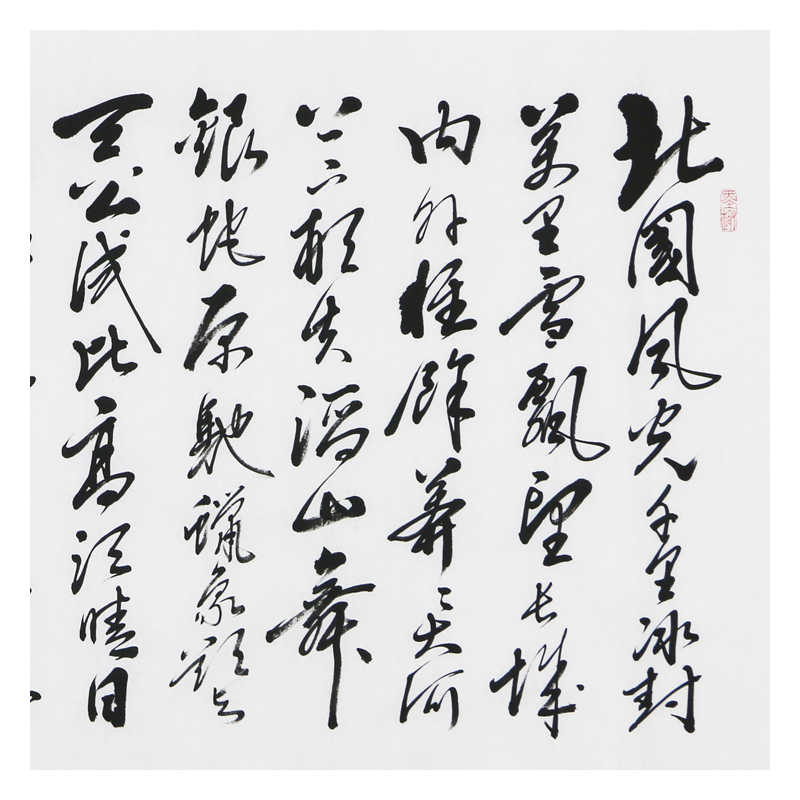 北國風光千里冰封
萬里雪飄望長城
内外惟餘莽〻大河
上下頓失滔山舞
銀蛇原馳蠟象欲与
天公試比高須晴日